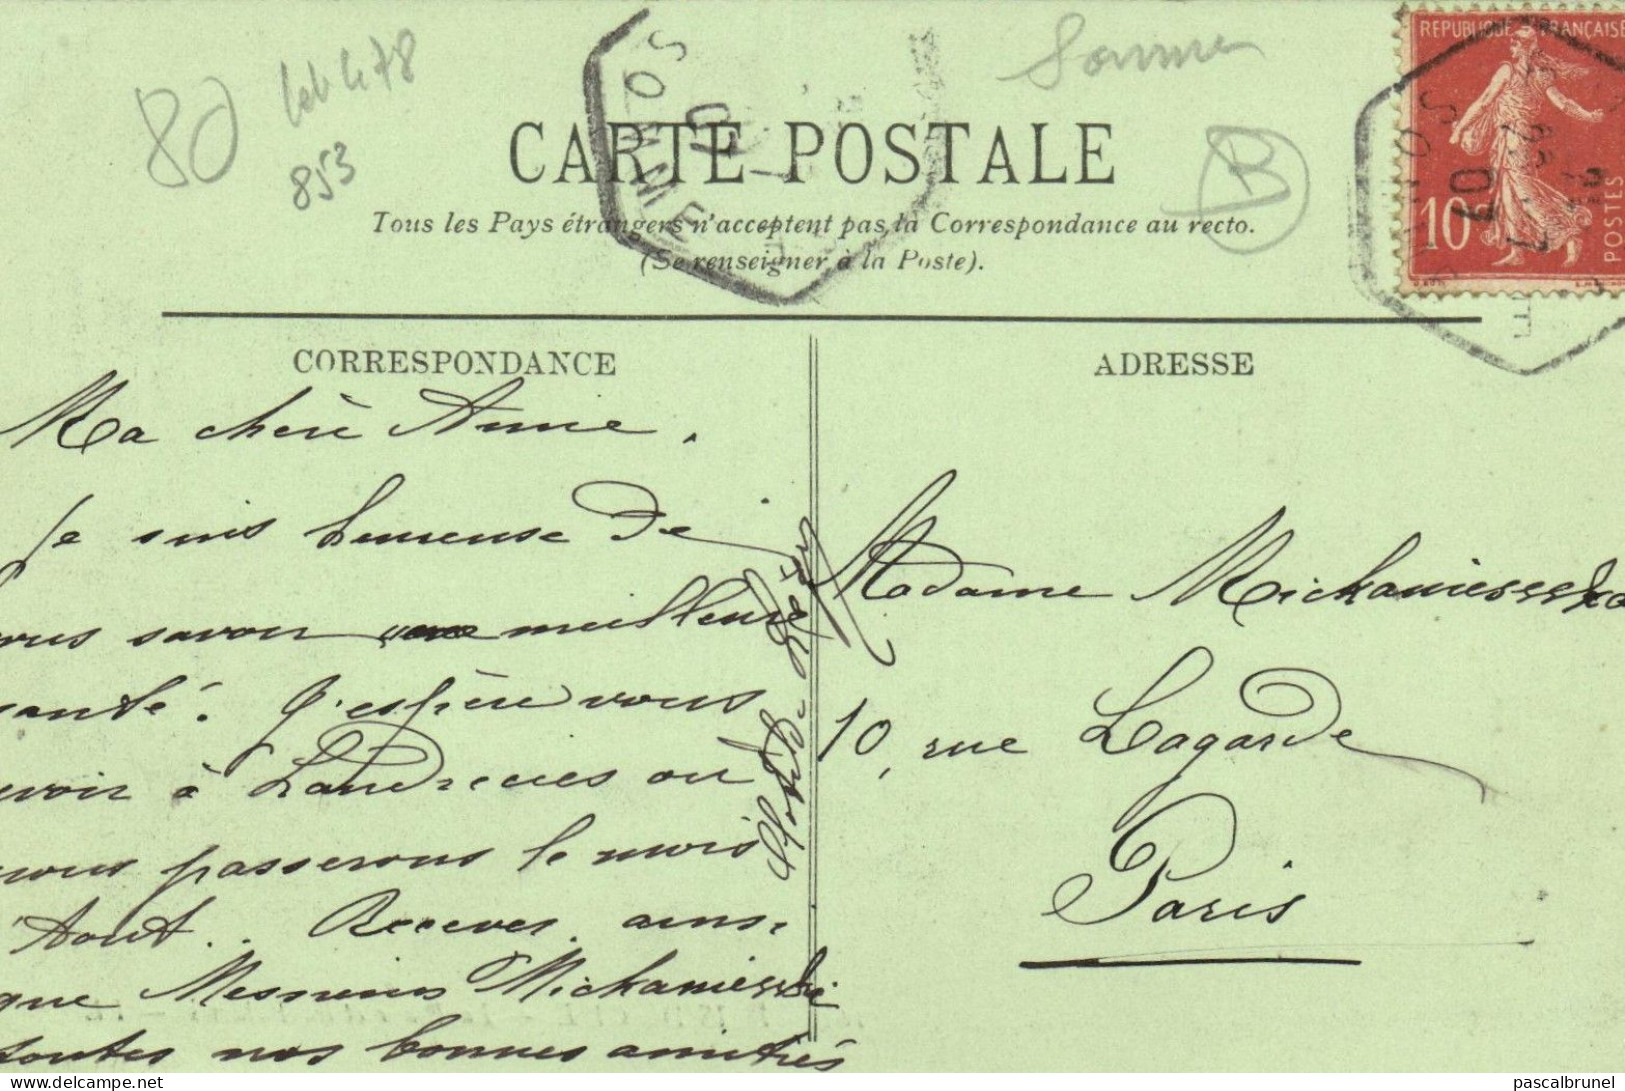 80
lot 478
853
Somme
B
SOMME
07
REPUBLIQUE FRANÇAISE
10c
POSTES
CARTE POSTALE
Tous les Pays étrangers n'acceptent pas la Correspondance au recto.
(Se renseigner à la Poste).
CORRESPONDANCE
Ma chère Anne,
Je suis heureuse de
vous savoir une meilleure
santé. J'espère vous
voir à Landrecies où
nous passerons le mois
d'Aout. Recevez ainsi
que Messieurs Michaniesski
toutes nos bonnes amitiés
ADRESSE
Madame Michaniesska
10, rue Lagarde
Paris
pascalbrunel | delcampe.net